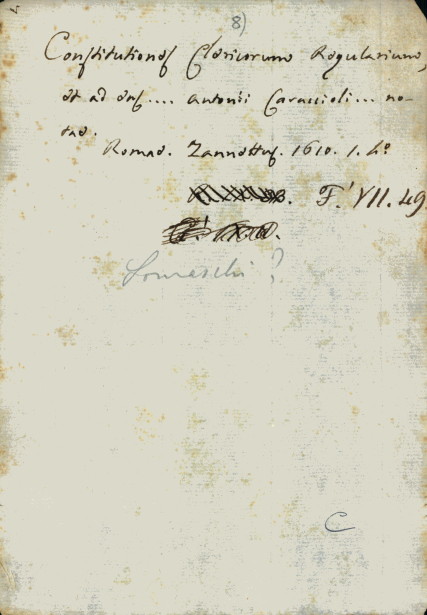 8)
Constitutiones Clericorum Regularium,
et ad eas .... Antonii Caraccioli ... no-
tae.
Romae. Zannettus. 1610. 1. 4o
F. VII. 49
Somaschi?
C